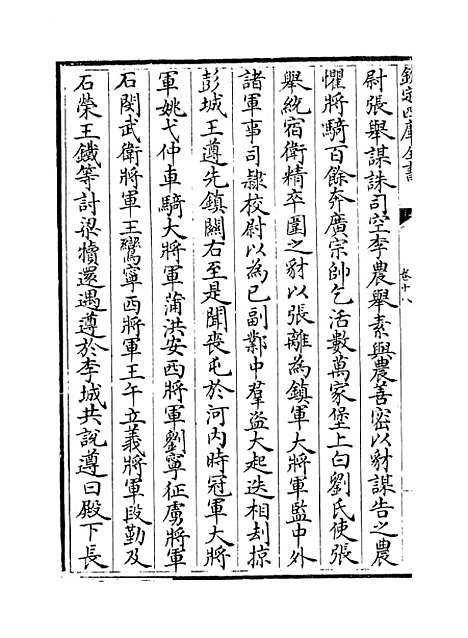 欽定四庫全書
卷十八
尉張舉謀誅司空李農舉素與農善密以豺謀告之農
懼將騎百餘奔廣宗帥乞活數萬家堡上白劉氏使張
舉統宿衛精卒圍之豺以張離為鎮軍大將軍監中外
諸軍事司隸校尉以為已副鄴中羣盜大起迭相刦掠
彭城王遵先鎮關右至是聞喪屯於河内時冠軍大將
軍姚弋仲車騎大將軍蒲洪安西將軍劉寧征虜將軍
石閔武衛將軍王鸞寧西將軍王午立義將軍段勤及
石榮王鐵等討梁犢還遇遵於李城共説遵曰殿下長